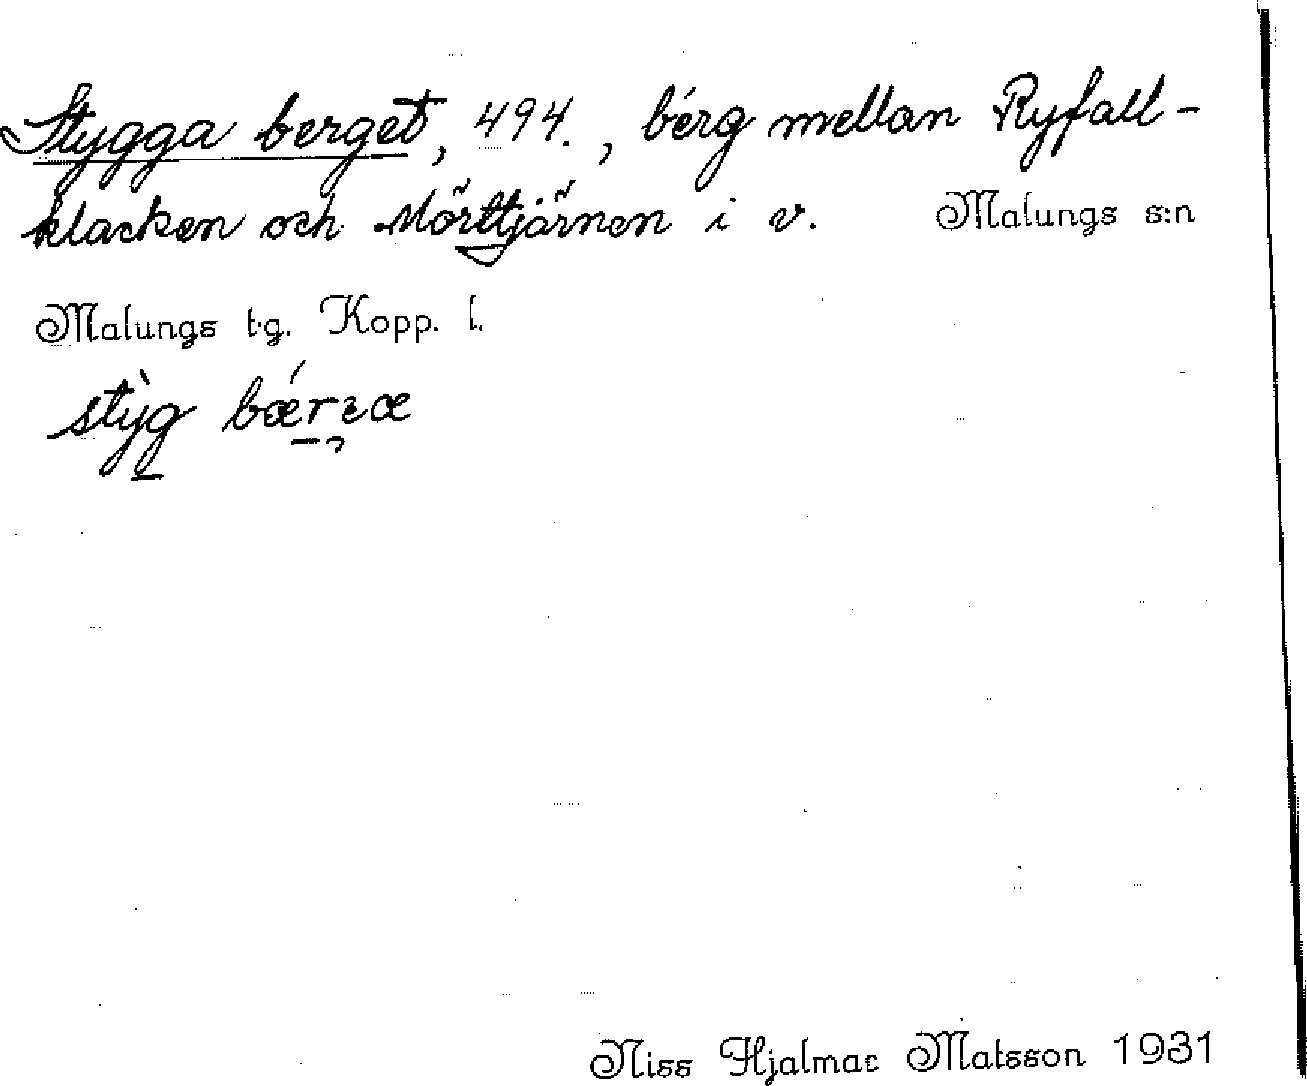 Stygga berget, 494., berg mellan Ryfall-
klacken och Mörttjärnen i v. Malungs s:n
Malungs t.g. Kopp. l.
stỳg
Niss Hjalmar Matsson 1931